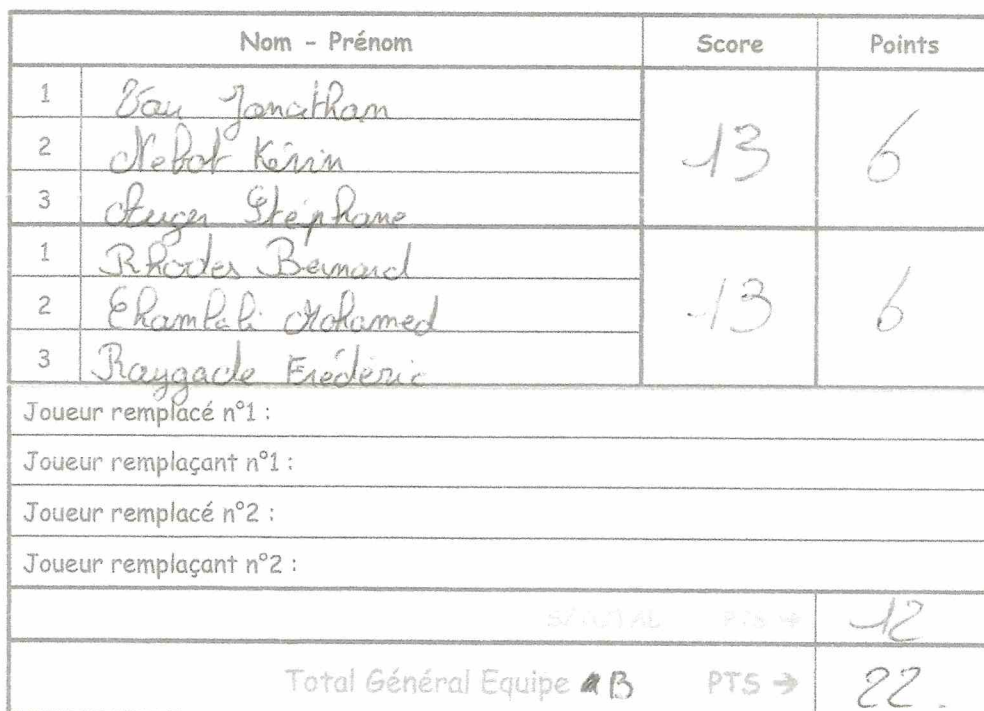 Nom - Prénom Score Points
1 Jonathan
2 Nebot Kévin 13 6
3 Auger Stéphane
1 Rhodes Bernard
2 Mohamed 13 6
3 Raygade Frédéric
Joueur remplacé n°1 :
Joueur remplaçant n°1 :
Joueur remplacé n°2 :
Joueur remplaçant n°2 :
S/TOTAL PTS → 12
Total Général Equipe B PTS → 22.